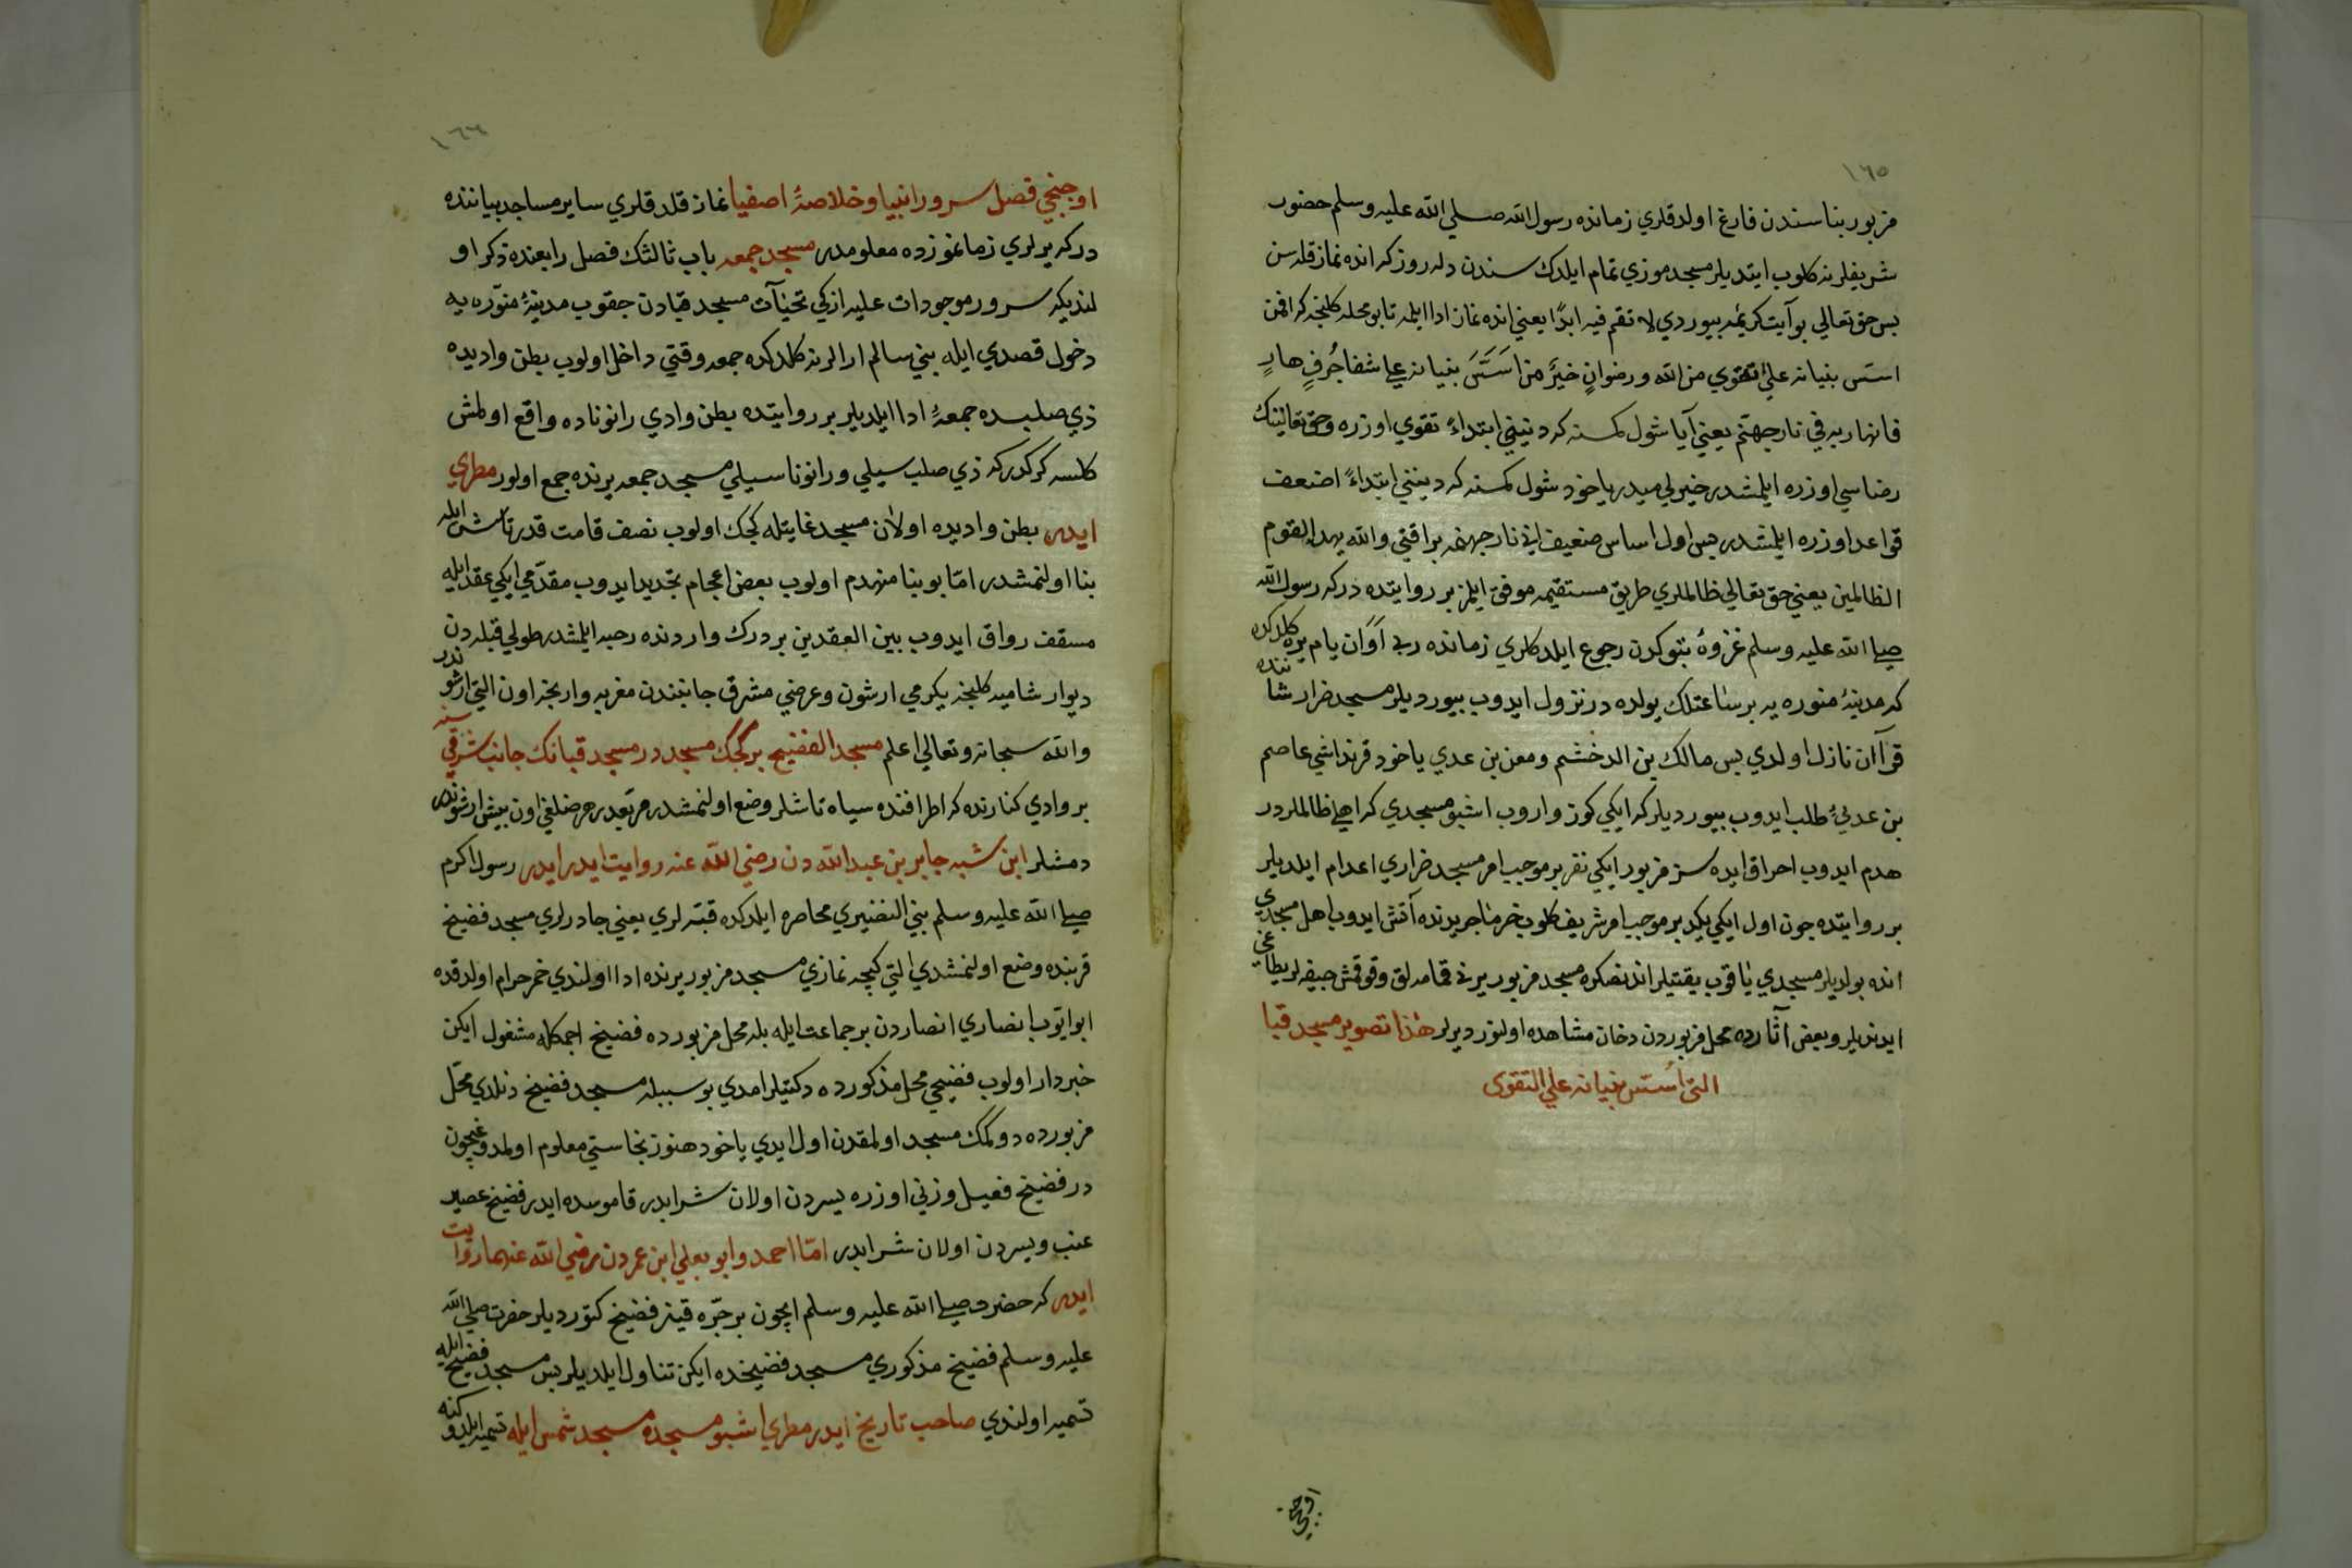 ١٦٥
مزبور بناسندن فارغ اولدقلري زمانده رسول الله صلي الله عليه وسلم حضور
شريفلرنه كلوب ايتديلر مسجدموزي تمام ايلدك سندن دلرروز كه انده نماز قله سن
بس حق تعالي بو آيت كريمه بيوردي لا تقم فيه ابدًا يعني انده نماز ادا ايلمه تا بو محله كلنجه كه افمن
اسّس بنيانه علي تقوي من الله ورضوانٍ خيرٌ من اَسَّسَ بنيانه علي شفا جُرفٍ هارٍ
فانهار به في نار جهنّم يعني آيا شول كمسنه كه دينني ابتداءً تقوي اوزره وحق تعالينك
رضاسي اوزره ايلمشدر خيرلي ميدر يا خود شول كمسنه كه دينني ابتداءً اضعف
قواعد اوزره ايلمشدر بس اول اساس ضعيف اني نار جهنمه براقتي والله لا يهدي القوم
الظالمين يعني حق تعالي ظالملري طريق مستقيمه موفق ايلمز بر روايتده دركه رسول الله
صلي الله عليه وسلم غزوۀ تبوكدن رجوع ايلدكلري زمانده ذي اَوَان نام يره كلدكده
كه مدينۀ منوره يه بر ساعتلك يولده در نزول ايدوب بيورديلر مسجد ضرار شاننده
قرآن نازل اولدي بس مالك بن الدخشم ومعن بن عدي يا خود قرنداشي عاصم
بن عديئ طلب ايدوب بيورديلر كه ايكي كوز واروب اشبو مسجدي كه اهلي ظالملردر
هدم ايدوب احراق ايده سز مزبور ايكي نفر بر موجب امر مسجد ضراري اعدام ايلديلر
بر روايتده چون اول ايكي يكدير موجب امر شريف كلوب خرما جريدنده آتش ايدوب اهل مسجدي
انده بولديلر مسجدي ياقوب يقتيلر اندنصكره مسجد مزبور يرني قمامه لق وقوقمش جيفه لر يطاغي
ايدنديلر وبعض آثارده محل مزبوردن دخان مشاهده اولنور ديرلر هٰذا تصوير مسجد قبا
التي اُسّس بنيانه علي التقوى
اوچنجي
١٦٦
اوچنجي فصل سرور انبيا وخلاصۀ اصفيا نماز قلدقلري ساير مساجد بياننده
دركه يرلري زمانمزده معلومدر مسجد جمعه باب ثالثك فصل رابعنده ذكر او
لنديكه سرور موجودات عليه ازكي تحيّات مسجد قبادن چقوب مدينۀ منوّره يه
دخول قصدي ايله بني سالم ارالرنه كلدكده جمعه وقتي داخل اولوب بطن واديده
ذي صلبده جمعۀ ادا ايلديلر بر روايتده بطن وادي رانوناده واقع اولمش
كلسه كركدر كه ذي صلب سيلي ورانونا سيلي مسجد جمعه يرنده جمع اولور مطري
ايدر بطن واديده اولان مسجد غايتله كچك اولوب نصف قامت قدر تاش ايله
بنا اولنمشدر امّا بو بنا منهدم اولوب بعض اعجام تجديد ايدوب مقدّمي ايكي عقد ايله
مسقف رواق ايدوب بين العقدين بر درك واردنده رحبه ايلمشدر طولي قبله دن
ديوار شاميه كلنجه يكرمي ارشون وعرضي مشرق جانبندن مغربه وارنجه اون التي ارشوندر
والله سبحانه وتعالي اعلم مسجد الفضيخ بر كچك مسجددر مسجد قبانك جانب شرقيسنه
بر وادي كنارنده كه اطرافنده سياه تاشلر وضع اولنمشدر مربّعدر عرضلغي اون بيش ارشوندر
دمشلر ابن شبه جابر بن عبدالله دن رضي الله عنه روايت ايدر ايدر رسول اكرم
صلي الله عليه وسلم بني النضيري محاصره ايلدكده قبّه لري يعني چادرلري مسجد فضيخ
قربنده وضع اولنمشدي التي كيجه نمازي مسجد مزبور يرنده ادا اولندي خمر حرام اولدقده
ابو ايّوب انصاري انصاردن بر جماعت ايله بله محل مزبورده فضيخ اچمكله مشغول ايكن
خبردار اولوب فضيخي محل مذكورده دكتيلر امدي بو سببله مسجد فضيخ دنلدي محل
مزبورده دوكمك مسجد اولمقدن اول ايدي يا خود هنوز نجاستي معلوم اولمدوغيچون
در فضيخ فعيل وزني اوزره بسردن اولان شرابدر قاموسده ايدر فضيخ عصير
عنب وبسردن اولان شرابدر امّا احمد وابو يعلي ابن عمردن رضي الله عنهما روايت
ايدر كه حضرت صلي الله عليه وسلم ايچون بر جرّه قينر فضيخ كتورديلر حضرت صلي الله
عليه وسلم فضيخ مذكوري مسجد فضيخده ايكن تناول ايلديلر بس مسجد فضيخ ايله
تسميه اولندي صاحب تاريخ ايدر مطري اشبو مسجده مسجد شمس ايله تسميه ايلدوكنه